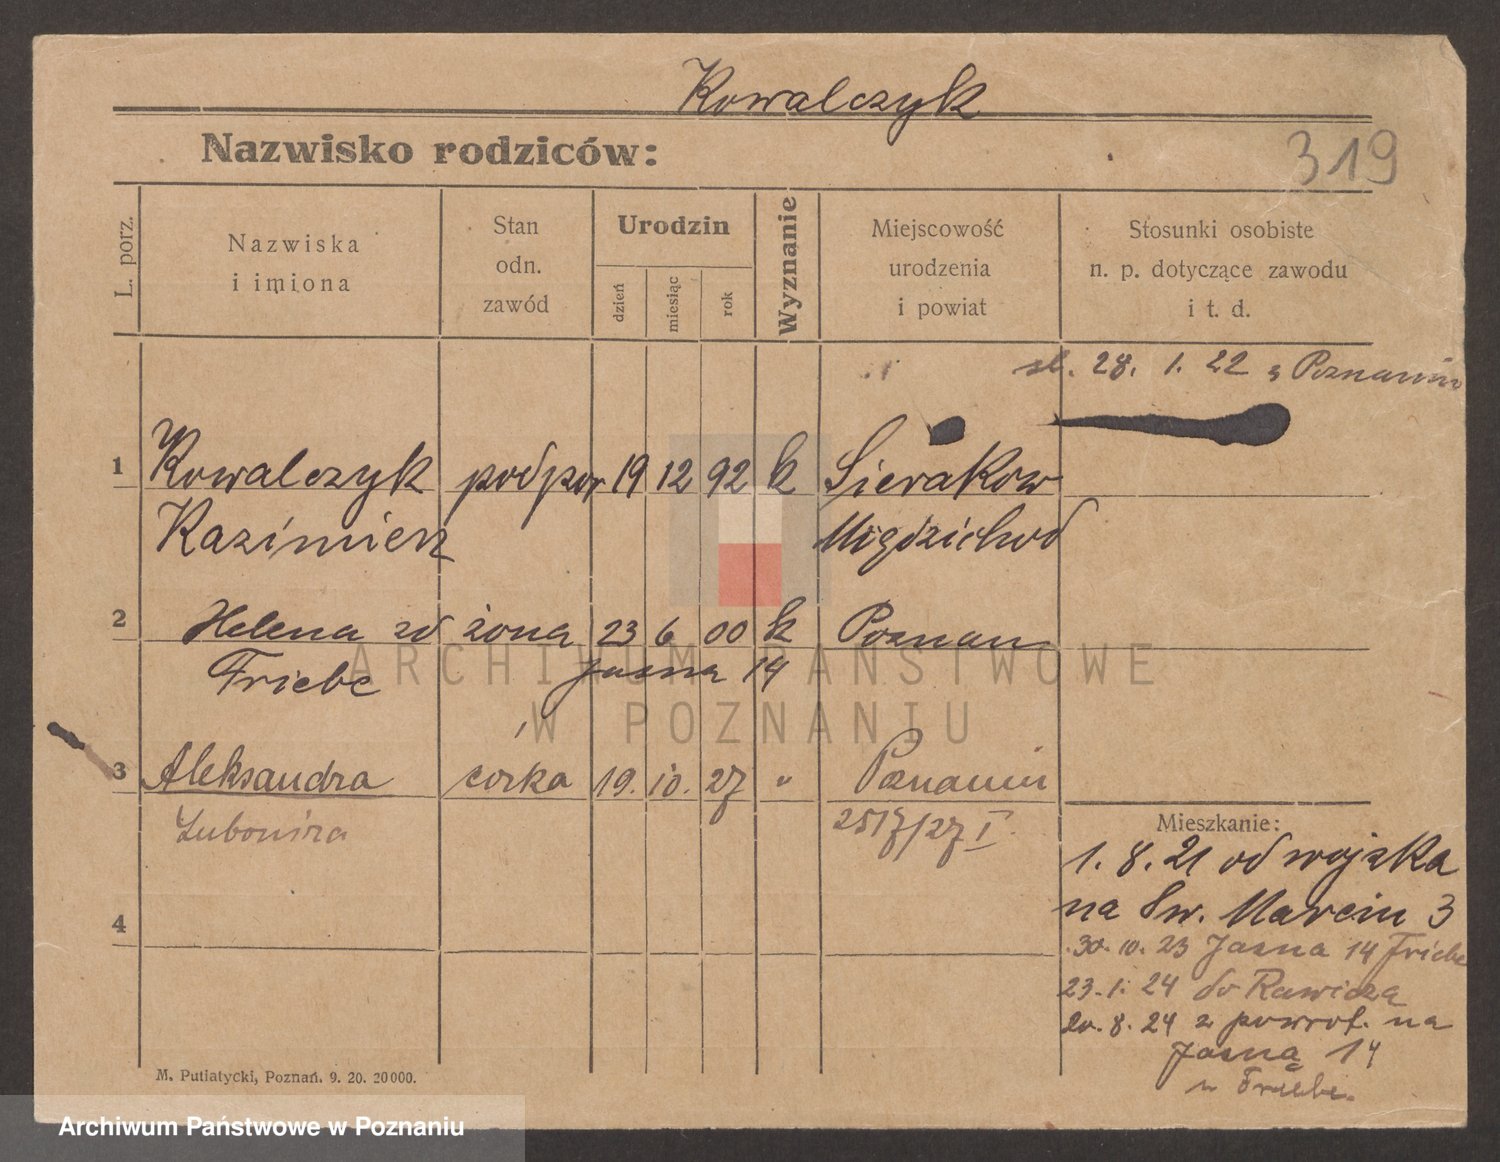 Kowalczyk
Nazwisko rodziców:
319
L. porz.
Nazwiska
i imiona
Stan
odn.
zawód
Urodzin
dzień
miesiąc
rok
Wyznanie
Miejscowość
urodzenia
i powiat
Stosunki osobiste
n. p. dotyczące zawodu
i t. d.
sl. 28. 1. 22 z Poznaniu
1 Kowalczyk podpor 19 12 92 k Sierakow
Kazimierz Migdzichod
2 Helena zd żona 23 6 00 k Poznan
Friebe Jasna 14
3 Aleksandra córka 19. 10. 27 " Poznaniu
Lubomira 2517/27 I.
Mieszkanie:
1. 8. 21 od wojska
na Św. Marcin 3
4
30. 10. 23 Jasna 14 Friebe
23. 1. 24 do Rawicza
20. 8. 24 z powrot. na
Jasną 14
u Friebe.
M. Putiatycki, Poznań. 9. 20. 20000.
ARCHIWUM PAŃSTWOWE
W POZNANIU
Archiwum Państwowe w Poznaniu